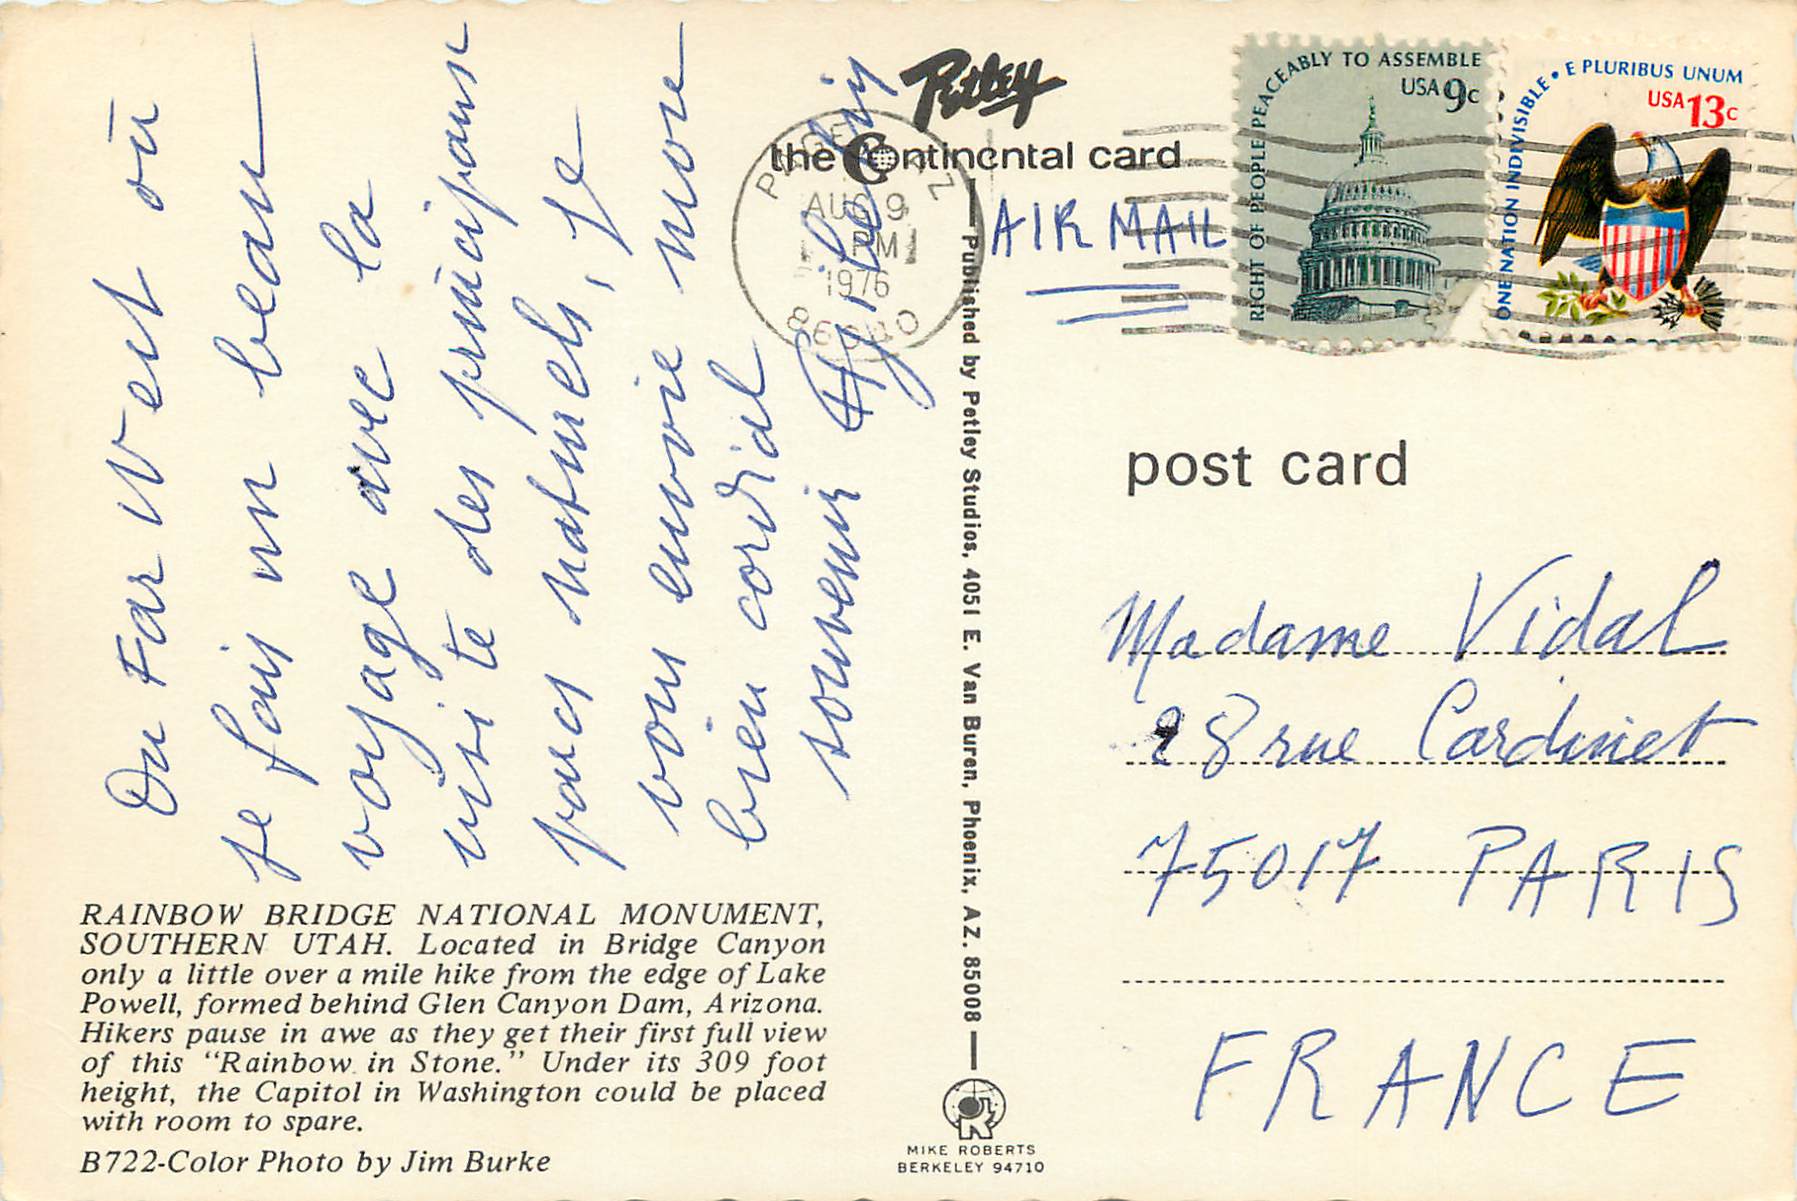 Du Far West où
je fais un beau
voyage avec la
visite des principaux
parcs naturels, je
vous envoie mon
bien cordial
souvenir
RAINBOW BRIDGE NATIONAL MONUMENT,
SOUTHERN UTAH. Located in Bridge Canyon
only a little over a mile hike from the edge of Lake
Powell, formed behind Glen Canyon Dam, Arizona.
Hikers pause in awe as they get their first full view
of this "Rainbow in Stone." Under its 309 foot
height, the Capitol in Washington could be placed
with room to spare.
B722-Color Photo by Jim Burke
Petley
the Continental card
Published by Petley Studios, 4051 E. Van Buren, Phoenix, AZ. 85008
MIKE ROBERTS
BERKELEY 94710
PAGE AZ
AUG 9
PM
1976
86040
AIR MAIL
RIGHT OF PEOPLE PEACEABLY TO ASSEMBLE
USA 9c
ONE NATION INDIVISIBLE • E PLURIBUS UNUM
USA 13c
post card
Madame Vidal
28 rue Cardinet
75017 PARIS
FRANCE